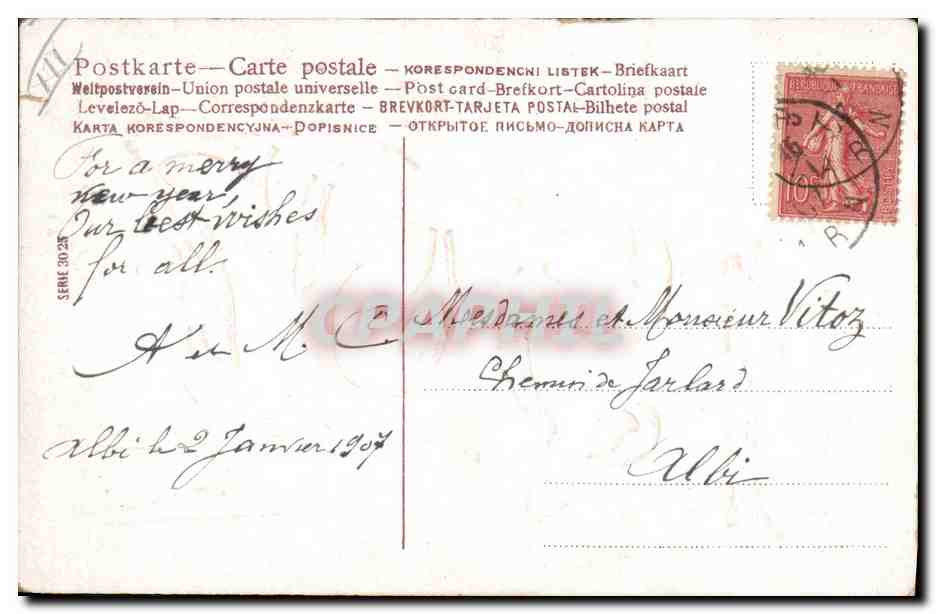 Postkarte — Carte postale – KORESPONDENCNI LISTEK – Briefkaart
Weltpostverein – Union postale universelle – Post card – Brefkort – Cartolina postale
Levelező-Lap – Correspondenzkarte – BREVKORT – TARJETA POSTAL – Bilhete postal
KARTA KORESPONDENCYJNA – DOPISNICE – ОТКРЫТОЕ ПИСЬМО – ДОПИСНА КАРТА
For a merry
new year,
Our best wishes
for all.
A et M. C.
Albi le 2 Janvier 1907
SERIE 3025
REPUBLIQUE FRANÇAISE
10
Mesdames et Monsieur Vitoz
Chemin de Jarlard
Albi
TARN
CPAPHIL